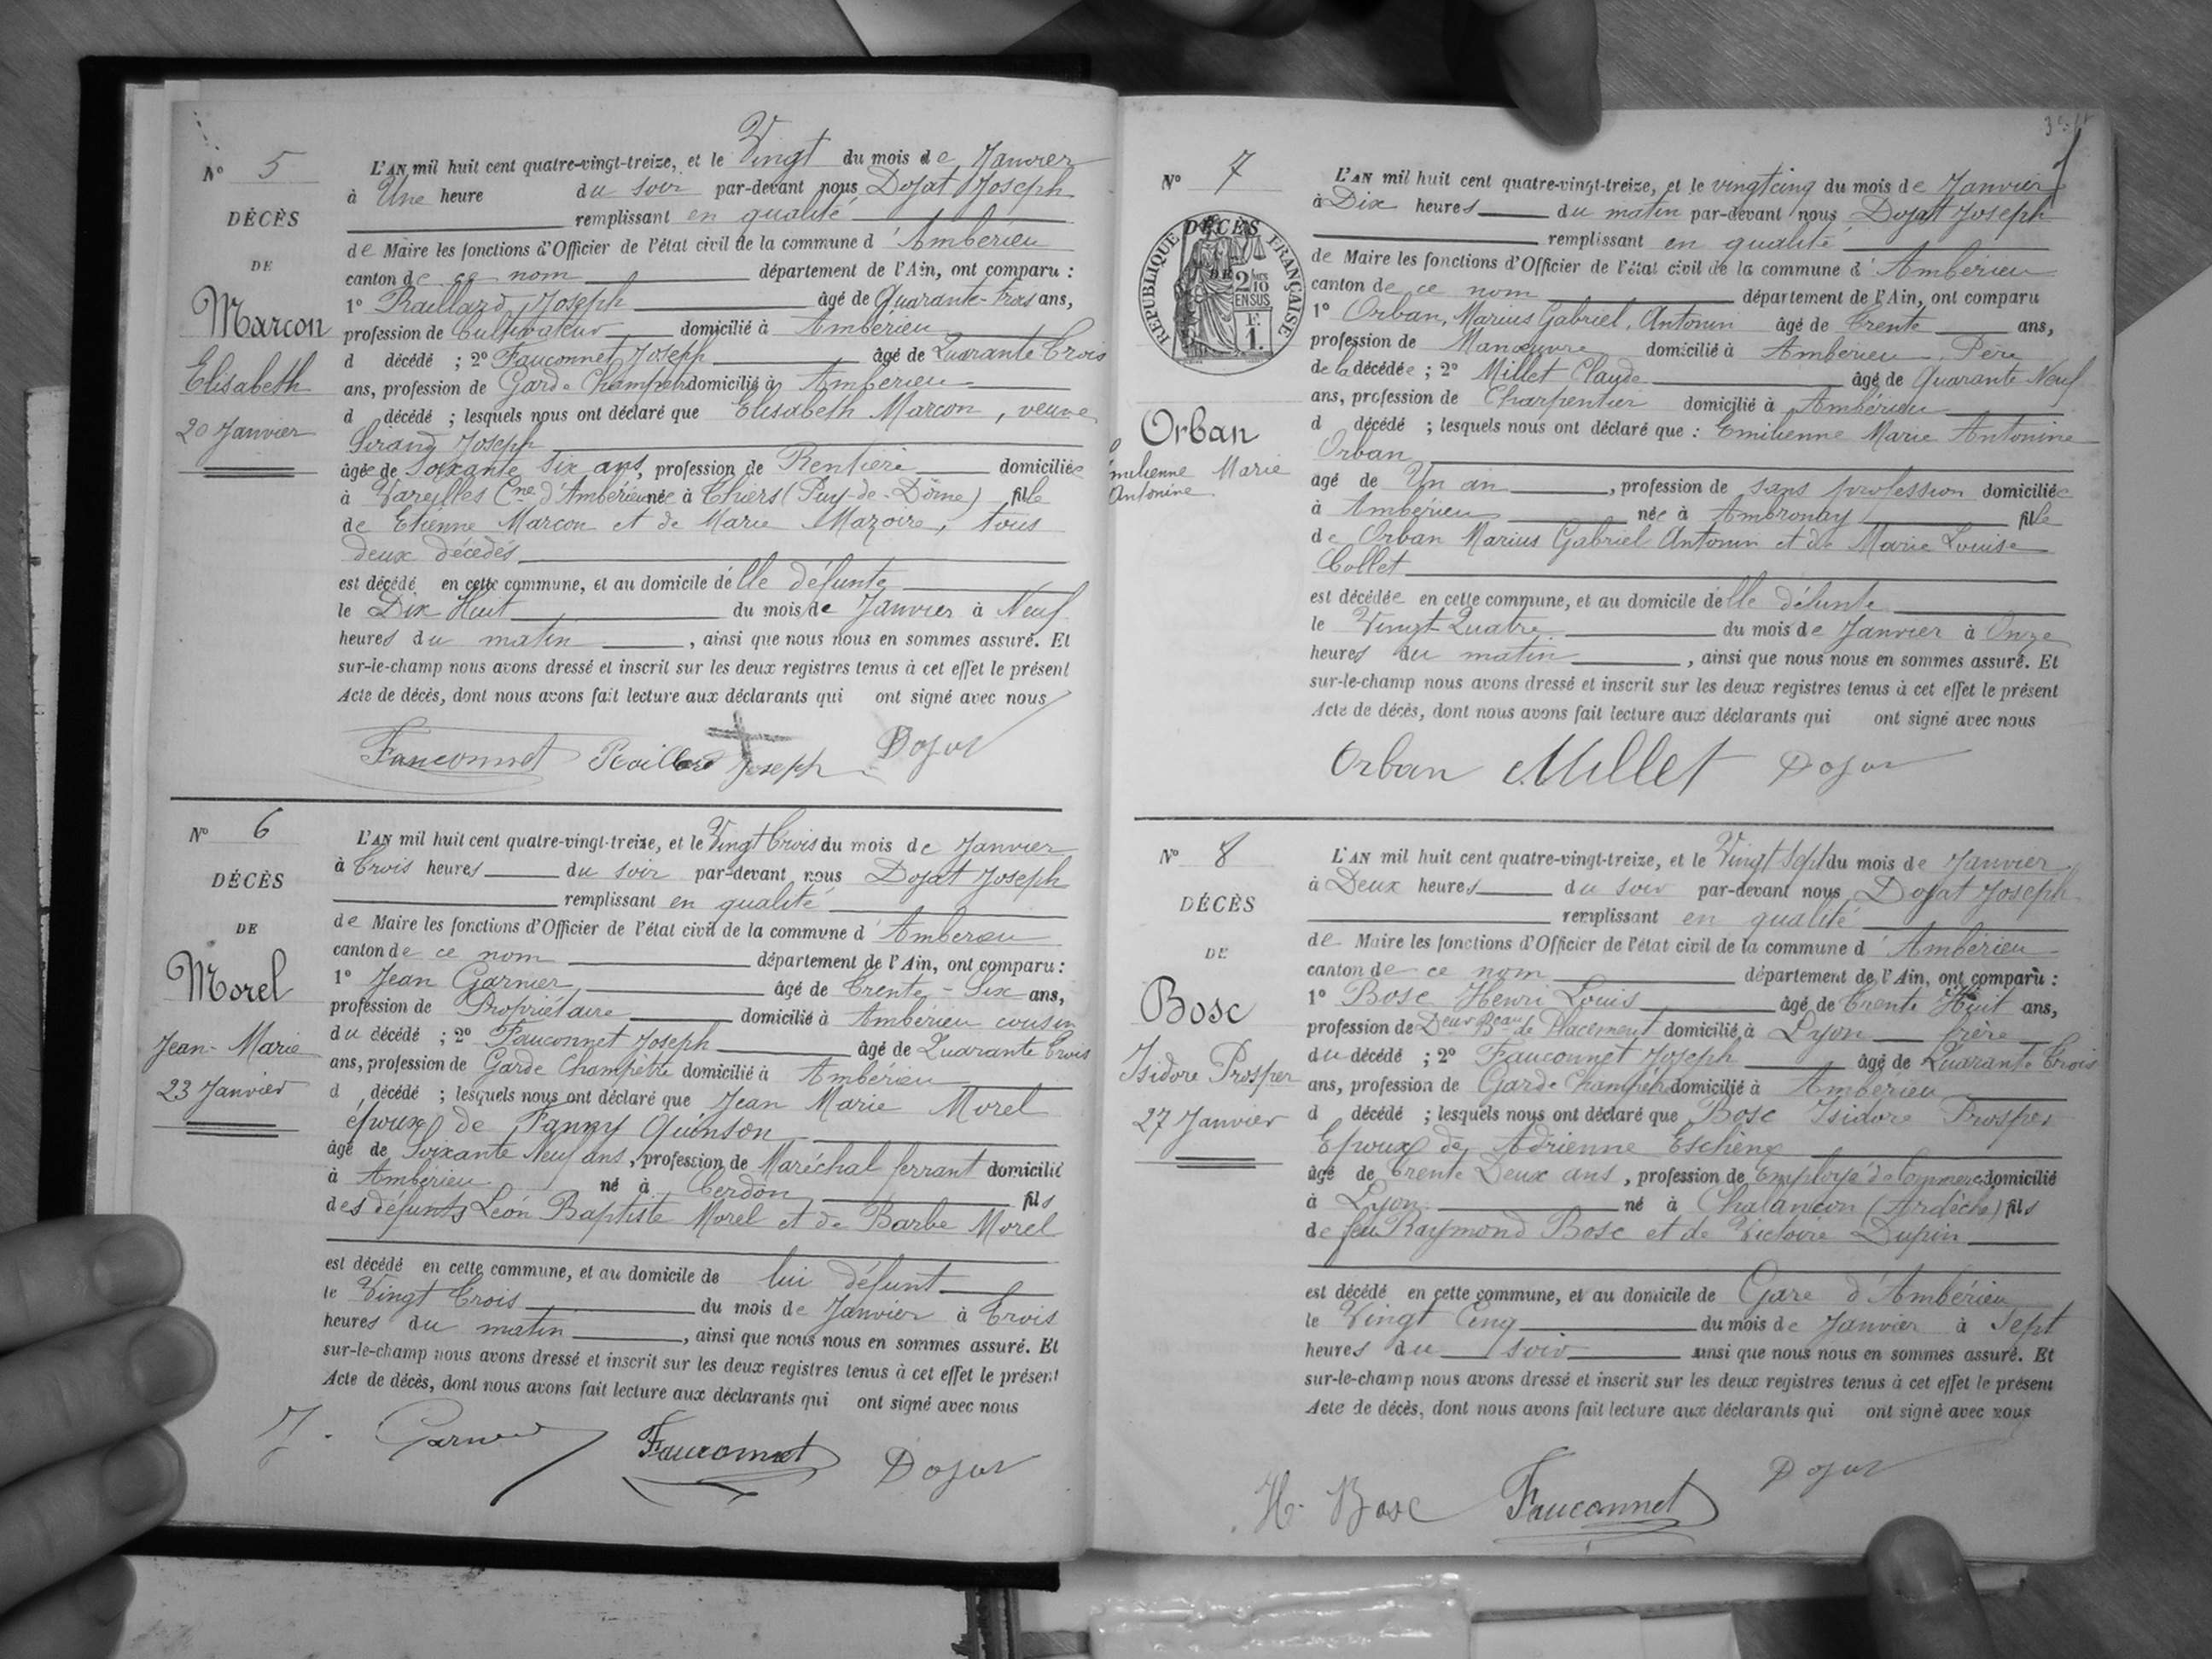 N° 5
DÉCÈS
DE
Marcon
Elisabeth
20 Janvier
L'AN mil huit cent quatre-vingt-treize, et le Vingt du mois de Janvier
à Une heure du soir par-devant nous Dojat Joseph
remplissant en qualité
de Maire les fonctions d'Officier de l'état civil de la commune d'Ambérieu
canton de ce nom département de l'Ain, ont comparu :
1° Raillard Joseph âgé de Quarante-trois ans,
profession de Cultivateur domicilié à Ambérieu
d décédé ; 2° Fauconnet Joseph âgé de Quarante Trois
ans, profession de Garde Champêtre domicilié à Ambérieu
d décédé ; lesquels nous ont déclaré que Elisabeth Marcon, veuve
Sirand Joseph
âgée de Soixante Six ans, profession de Rentière domiciliée
à Vareilles Cne d'Ambérieu née à Thiers (Puy-de-Dôme) fille
de Etienne Marcon et de Marie Mazoire, tous
deux décédés
est décédé en cette commune, et au domicile de lle défunte
le Dix Huit du mois de Janvier à Neuf
heures du matin, ainsi que nous nous en sommes assuré. Et
sur-le-champ nous avons dressé et inscrit sur les deux registres tenus à cet effet le présent
Acte de décès, dont nous avons fait lecture aux déclarants qui ont signé avec nous
Fauconnet Raillard Joseph Dojat
N° 6
DÉCÈS
DE
Morel
Jean-Marie
23 Janvier
L'AN mil huit cent quatre-vingt-treize, et le Vingt Trois du mois de Janvier
à Trois heures du soir par-devant nous Dojat Joseph
remplissant en qualité
de Maire les fonctions d'Officier de l'état civil de la commune d'Ambérieu
canton de ce nom département de l'Ain, ont comparu :
1° Jean Garnier âgé de Trente-Six ans,
profession de Propriétaire domicilié à Ambérieu cousin
du décédé ; 2° Fauconnet Joseph âgé de Quarante Trois
ans, profession de Garde Champêtre domicilié à Ambérieu
d décédé ; lesquels nous ont déclaré que Jean Marie Morel
époux de Fanny Quinson
âgé de Soixante Neuf ans, profession de Maréchal ferrant domicilié
à Ambérieu né à Cerdon fils
des défunts Léon Baptiste Morel et de Barbe Morel
est décédé en cette commune, et au domicile de lui défunt
le Vingt Trois du mois de Janvier à Trois
heures du matin, ainsi que nous nous en sommes assuré. Et
sur-le-champ nous avons dressé et inscrit sur les deux registres tenus à cet effet le présent
Acte de décès, dont nous avons fait lecture aux déclarants qui ont signé avec nous
J. Garnier Fauconnet Dojat
N° 7
RÉPUBLIQUE FRANÇAISE
DÉCÈS
DE
2/10 EN SUS
F. 1.
Orban
Emilienne Marie
Antonine
L'AN mil huit cent quatre-vingt-treize, et le vingt cinq du mois de Janvier
à Dix heures du matin par-devant nous Dojat Joseph
remplissant en qualité
de Maire les fonctions d'Officier de l'état civil de la commune d'Ambérieu
canton de ce nom département de l'Ain, ont comparu
1° Orban, Marius Gabriel, Antonin âgé de Trente ans,
profession de Manœuvre domicilié à Ambérieu, Père
de la décédée ; 2° Millet Claude âgé de Quarante Neuf
ans, profession de Charpentier domicilié à Ambérieu
d décédé ; lesquels nous ont déclaré que : Emilienne Marie Antonine
Orban
agé de Un an, profession de sans profession domiciliée
à Ambérieu née à Ambronay fille
de Orban Marius Gabriel Antonin et de Marie Louise
Collet
est décédée en cette commune, et au domicile de lle défunte
le Vingt-Quatre du mois de Janvier à Onze
heures du matin, ainsi que nous nous en sommes assuré. Et
sur-le-champ nous avons dressé et inscrit sur les deux registres tenus à cet effet le présent
Acte de décès, dont nous avons fait lecture aux déclarants qui ont signé avec nous
Orban Millet Dojat
N° 8
DÉCÈS
DE
Bosc
Isidore Prosper
27 Janvier
L'AN mil huit cent quatre-vingt-treize, et le Vingt Sept du mois de Janvier
à Deux heures du soir par-devant nous Dojat Joseph
remplissant en qualité
de Maire les fonctions d'Officier de l'état civil de la commune d'Ambérieu
canton de ce nom département de l'Ain, ont comparu :
1° Bosc Henri Louis âgé de Trente Huit ans,
profession de Deur Beau de Placement domicilié à Lyon frère
du décédé ; 2° Fauconnet Joseph âgé de Quarante Trois
ans, profession de Garde Champêtre domicilié à Ambérieu
d décédé ; lesquels nous ont déclaré que Bosc Isidore Prosper
Epoux de Adrienne
âgé de Trente Deux ans, profession de Employé de Commerce domicilié
à Lyon né à Chalancon (Ardèche) fils
de feu Raymond Bosc et de Victoire Dupin
est décédé en cette commune, et au domicile de Gare d'Ambérieu
le Vingt Cinq du mois de Janvier à Sept
heures du soir ainsi que nous nous en sommes assuré. Et
sur-le-champ nous avons dressé et inscrit sur les deux registres tenus à cet effet le présent
Acte de décès, dont nous avons fait lecture aux déclarants qui ont signé avec nous
H. Bosc Fauconnet Dojat